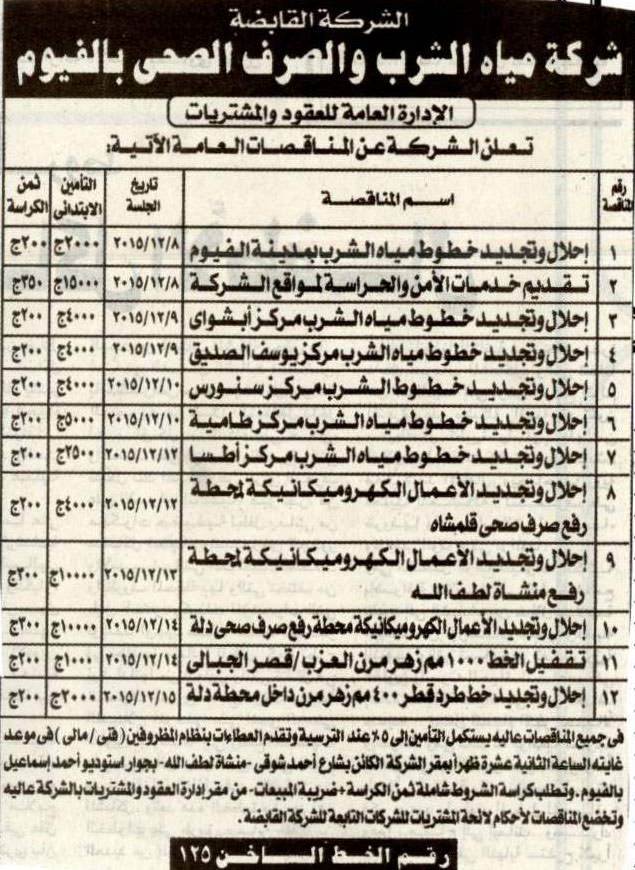 الشركة القابضة
شركة مياه الشرب والصرف الصحى بالفيوم
الإدارة العامة للعقود والمشتريات
تعلن الشركة عن المناقصات العامة الآتية:
رقم المناقصة | اسم المناقصة | تاريخ الجلسة | التأمين الابتدائى | ثمن الكراسة
١ | إحلال وتجديد خطوط مياه الشرب بمدينة الفيوم | ٢٠١٥/١٢/٨ | ٢٠٠٠ج | ٢٠٠ج
٢ | تقديم خدمات الأمن والحراسة لمواقع الشركة | ٢٠١٥/١٢/٨ | ١٥٠٠٠ج | ٣٥٠ج
٣ | إحلال وتجديد خطوط مياه الشرب مركز أبشواى | ٢٠١٥/١٢/٩ | ٤٠٠٠ج | ٢٠٠ج
٤ | إحلال وتجديد خطوط مياه الشرب مركز يوسف الصديق | ٢٠١٥/١٢/٩ | ٤٠٠٠ج | ٢٠٠ج
٥ | إحلال وتجديد خطوط الشرب مركز سنورس | ٢٠١٥/١٢/١٠ | ٤٠٠٠ج | ٢٠٠ج
٦ | إحلال وتجديد خطوط مياه الشرب مركز طامية | ٢٠١٥/١٢/١٠ | ٥٠٠٠ج | ٢٠٠ج
٧ | إحلال وتجديد خطوط مياه الشرب مركز أطسا | ٢٠١٥/١٢/١٢ | ٢٥٠٠ج | ٢٠٠ج
٨ | إحلال وتجديد الأعمال الكهروميكانيكة لمحطة
رفع صرف صحى قلمشاه | ٢٠١٥/١٢/١٢ | ٤٠٠٠ج | ٢٠٠ج
٩ | إحلال وتجديد الأعمال الكهروميكانيكة لمحطة
رفع منشاة لطف الله | ٢٠١٥/١٢/١٣ | ١٠٠٠٠ج | ٣٠٠ج
١٠ | إحلال وتجديد الأعمال الكهروميكانيكة محطة رفع صرف صحى دلة | ٢٠١٥/١٢/١٤ | ١٠٠٠٠ج | ٣٠٠ج
١١ | تقفيل الخط ١٠٠٠ مم زهر مرن العزب/قصر الجبالى | ٢٠١٥/١٢/١٤ | ١٠٠٠ج | ٢٠٠ج
١٢ | إحلال وتجديد خط طرد قطر ٤٠٠ مم زهر مرن داخل محطة دلة | ٢٠١٥/١٢/١٥ | ٢٠٠٠ج | ٢٠٠ج
فى جميع المناقصات عاليه يستكمل التأمين إلى ٥٪ عند الترسية وتقدم العطاءات بنظام المظروفين (فنى/مالى) فى موعد
غايته الساعة الثانية عشرة ظهراً بمقر الشركة الكائن بشارع أحمد شوقى -منشاة لطف الله- بجوار استوديو أحمد إسماعيل
بالفيوم. وتطلب كراسة الشروط شاملة ثمن الكراسة + ضريبة المبيعات- من مقر إدارة العقود والمشتريات بالشركة عاليه
وتخضع المناقصات لأحكام لائحة المشتريات للشركات التابعة للشركة القابضة.
رقم الخط الساخن ١٢٥